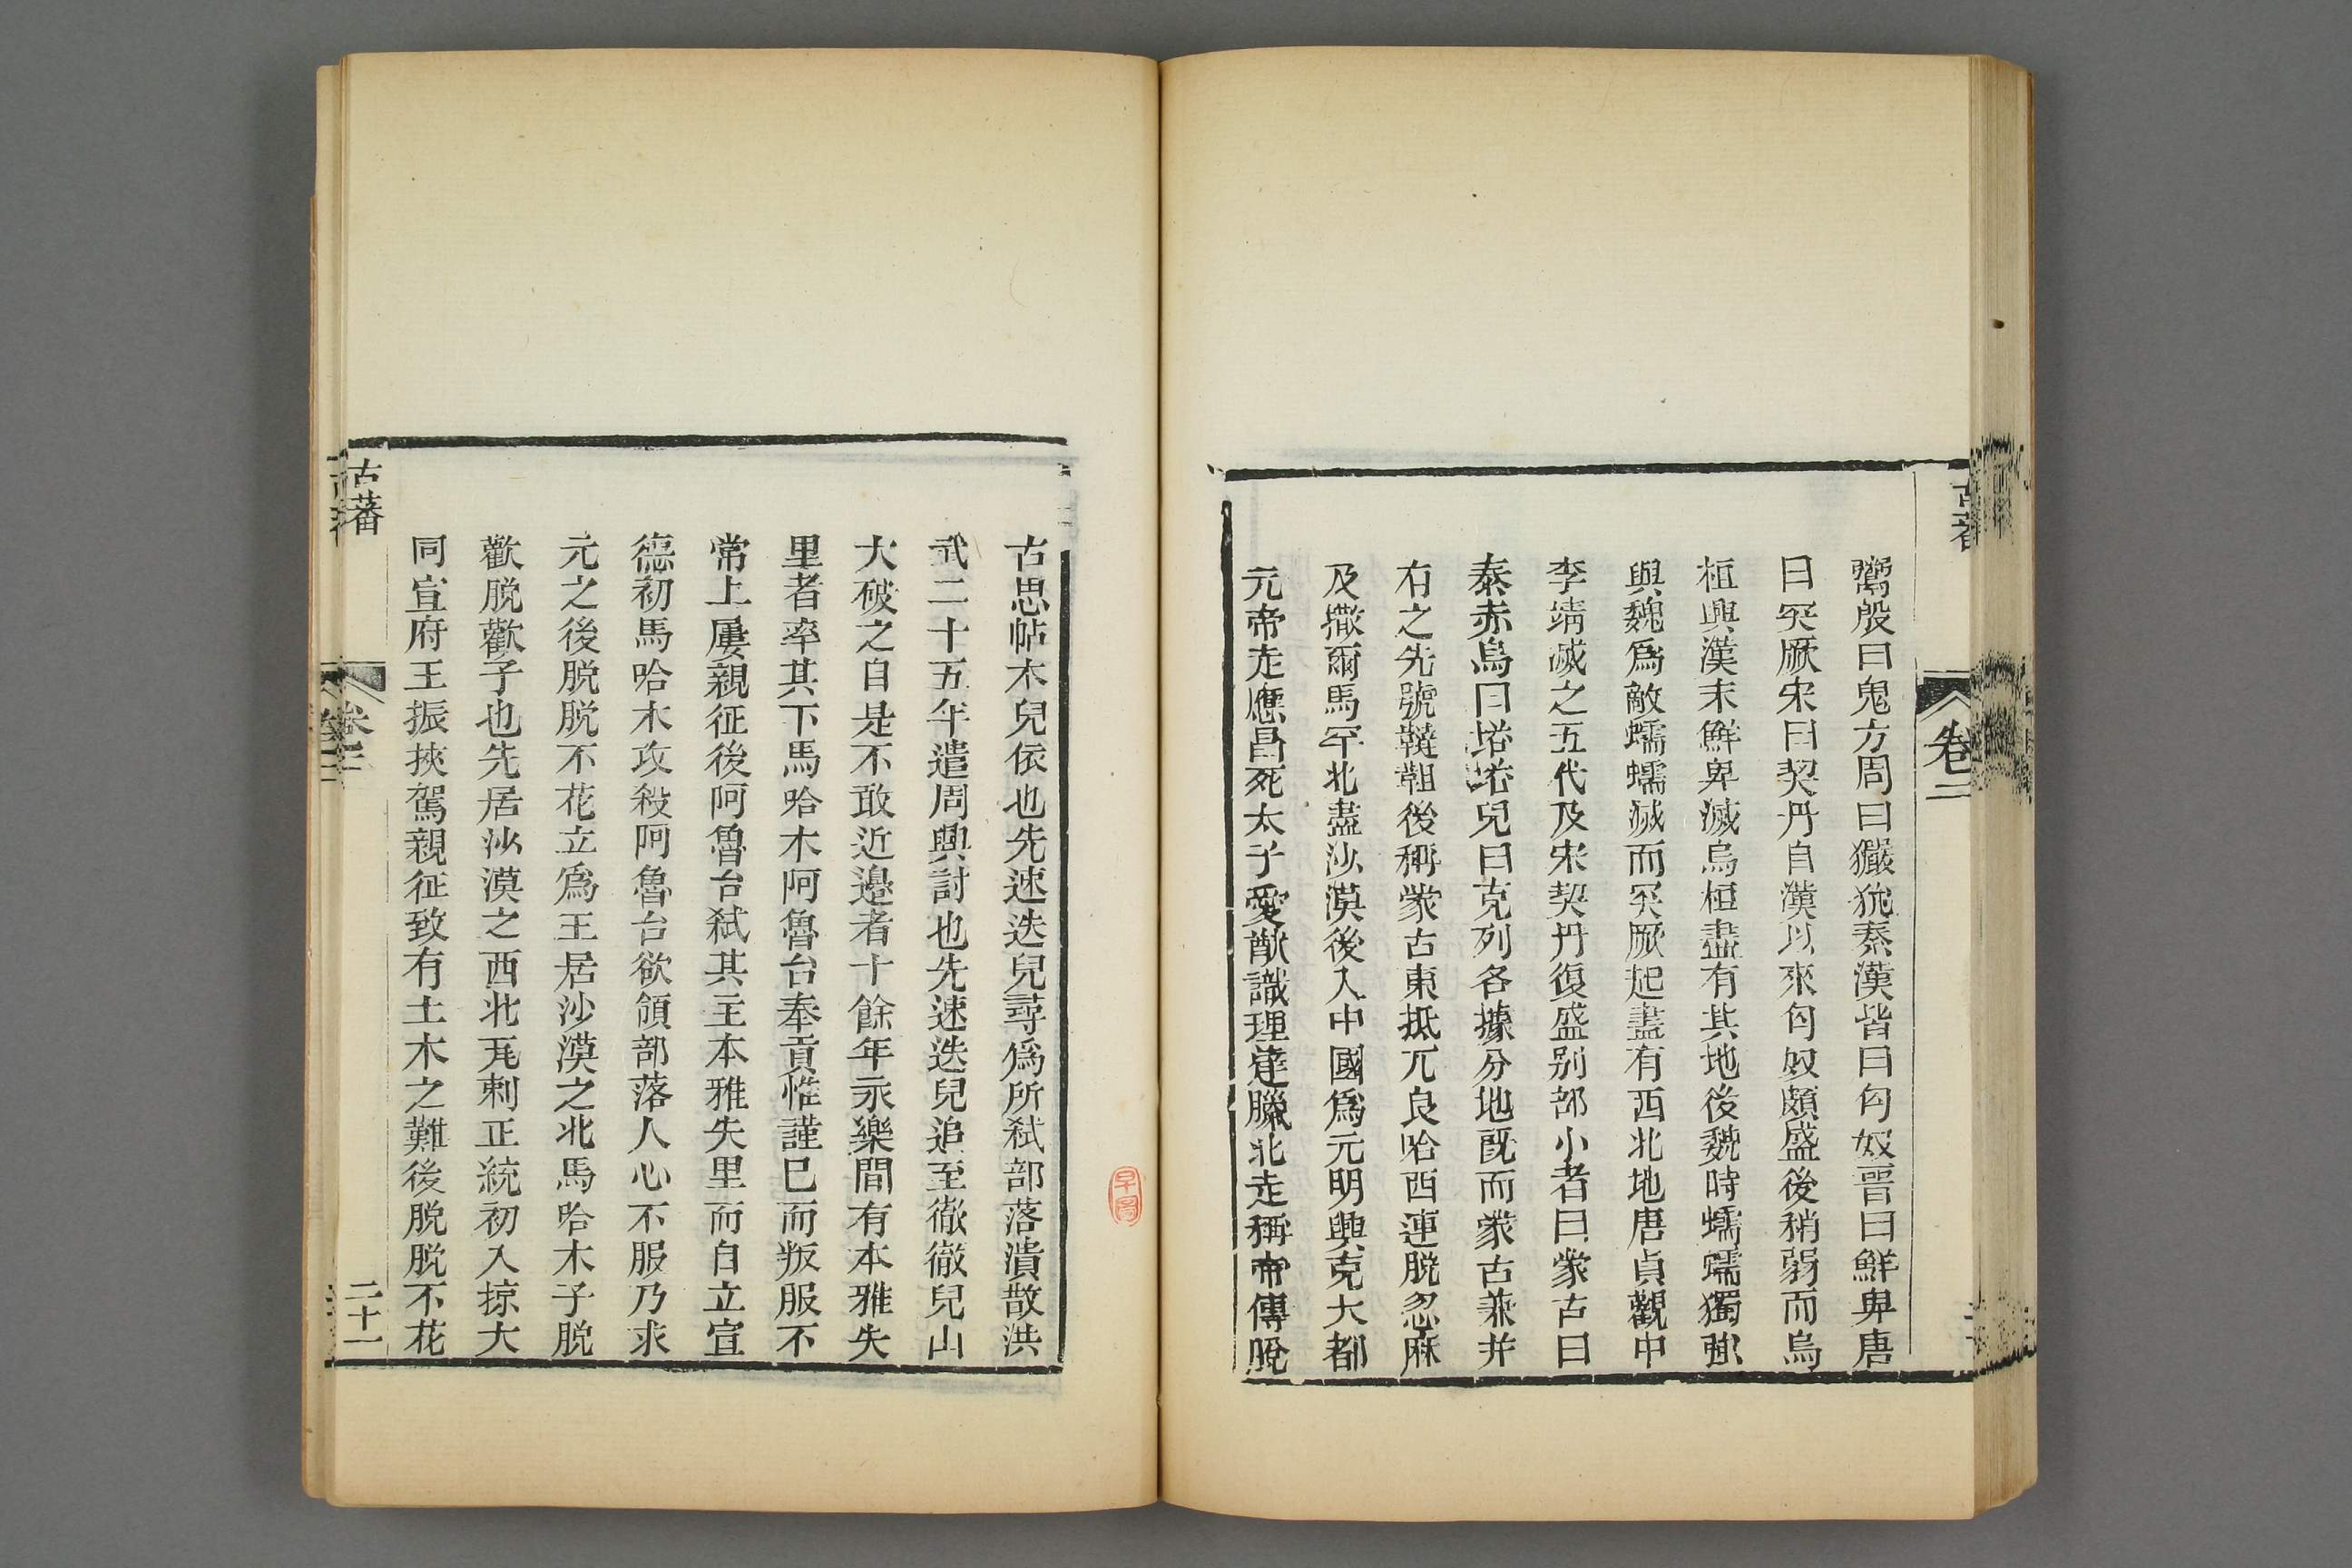 古蕃
卷二
鬻殷曰鬼方周曰玁狁秦漢皆曰匈奴晋曰鮮卑唐
曰突厥宋曰契丹自漢以來匈奴頗盛後稍弱而烏
桓興漢末鮮卑滅烏桓盡有其地後魏時蠕蠕獨強
與魏爲敵蠕蠕滅而突厥起盡有西北地唐貞觀中
李靖滅之五代及宋契丹復盛别部小者曰蒙古曰
泰赤烏曰塔塔兒曰克列各據分地旣而蒙古兼并
有之先號韃靼後稱蒙古東抵兀良哈西連脱忽麻
及撒爾馬罕北盡沙漠後入中國爲元明興克大都
元帝走應昌死太子愛猷識理達臘北走稱帝傳脫
古思帖木兒依也先速迭兒尋爲所弑部落潰散洪
武二十五年遣周興討也先速迭兒追至徹徹兒山
大破之自是不敢近邊者十餘年永樂間有本雅失
里者率其下馬哈木阿魯台奉貢惟謹巳而叛服不
常上屢親征後阿魯台弑其主本雅失里而自立宣
德初馬哈木攻殺阿魯台欲領部落人心不服乃求
元之後脱脱不花立爲王居沙漠之北馬哈木子脱
歡脱歡子也先居沙漠之西北瓦剌正統初入掠大
同宣府王振挾駕親征致有土木之難後脱脱不花
古蕃
卷二
二十一